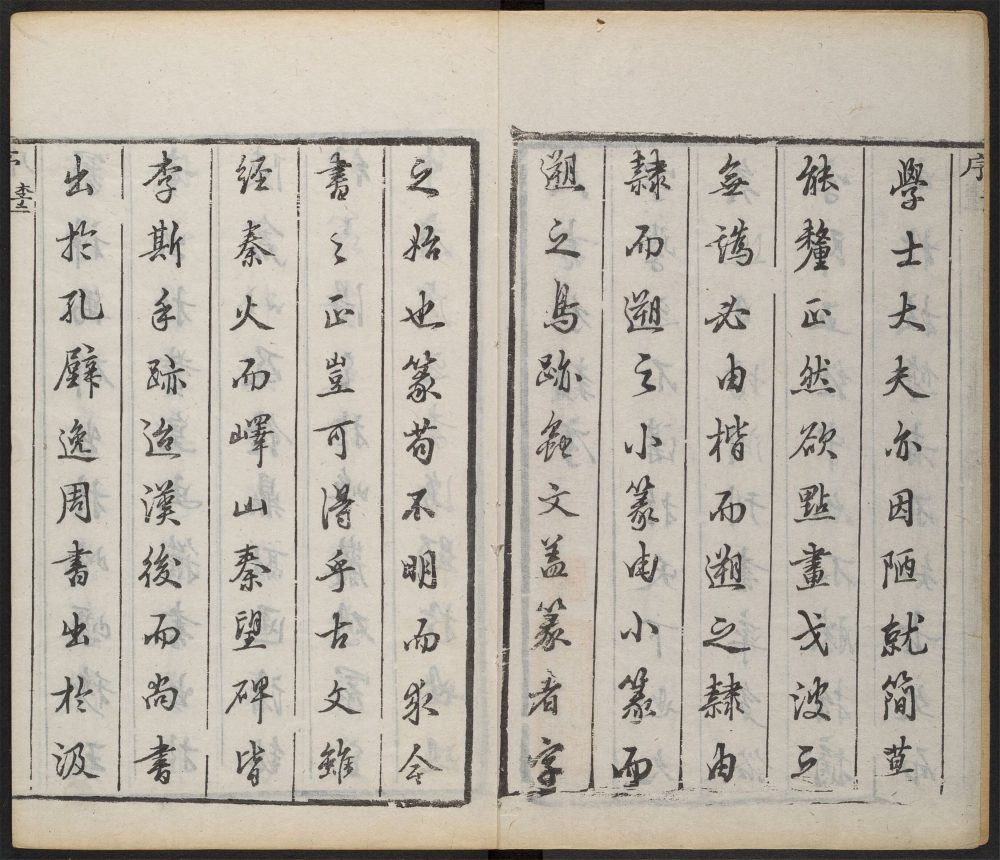 序
學士大夫亦因陋就簡莫
能釐正然欲點畫戈波之
無譌必由楷而遡之隸由
隸而遡之小篆由小篆而
遡之鳥跡蟲文盖篆者字
之始也篆苟不明而求今
書之正豈可得乎古文雖
經秦火而嶧山秦望碑皆
李斯手跡迨漢後而尚書
出於孔壁逸周書出於汲